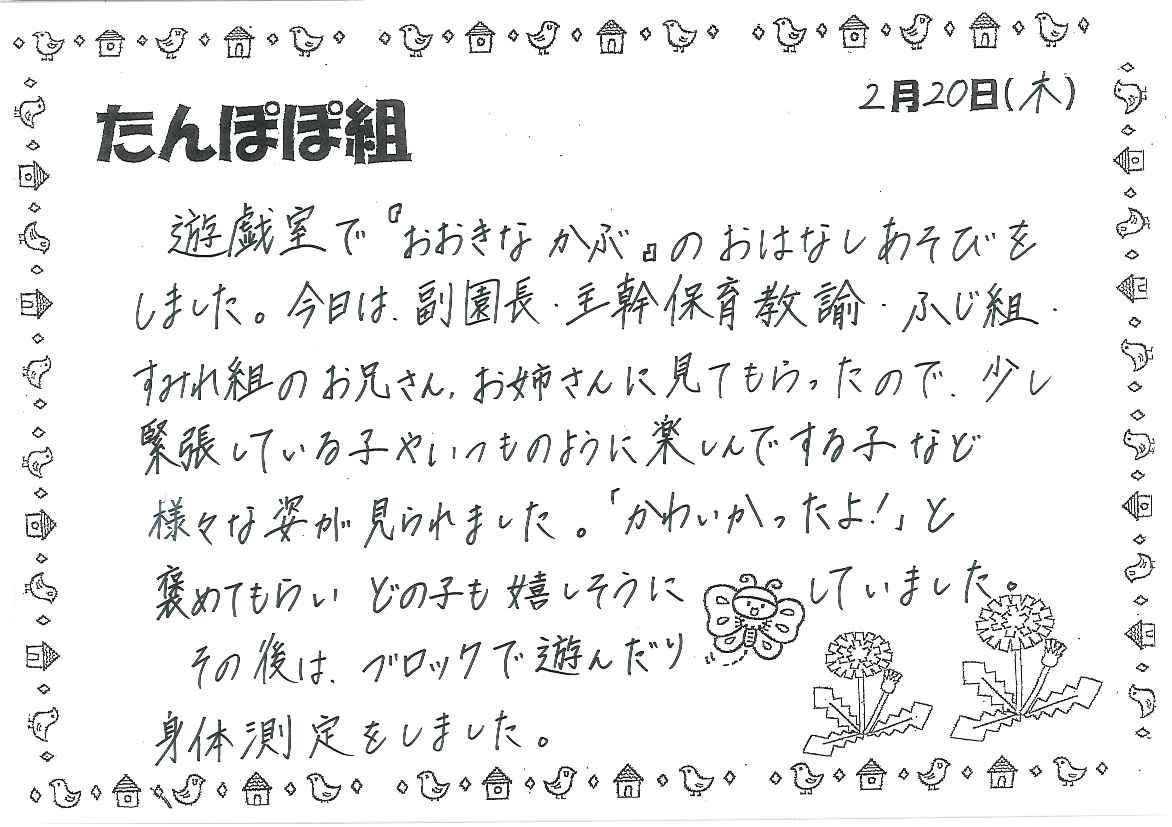 2月20日(木)
たんぽぽ組
遊戯室で『おおきなかぶ』のおはなしあそびを
しました。今日は、副園長・主幹保育教諭・ふじ組・
すみれ組のお兄さん、お姉さんに見てもらったので、少し
緊張している子やいつものように楽しんでする子など
様々な姿が見られました。「かわいかったよ!」と
褒めてもらいどの子も嬉しそうにしていました。
その後は、ブロックで遊んだり
身体測定をしました。